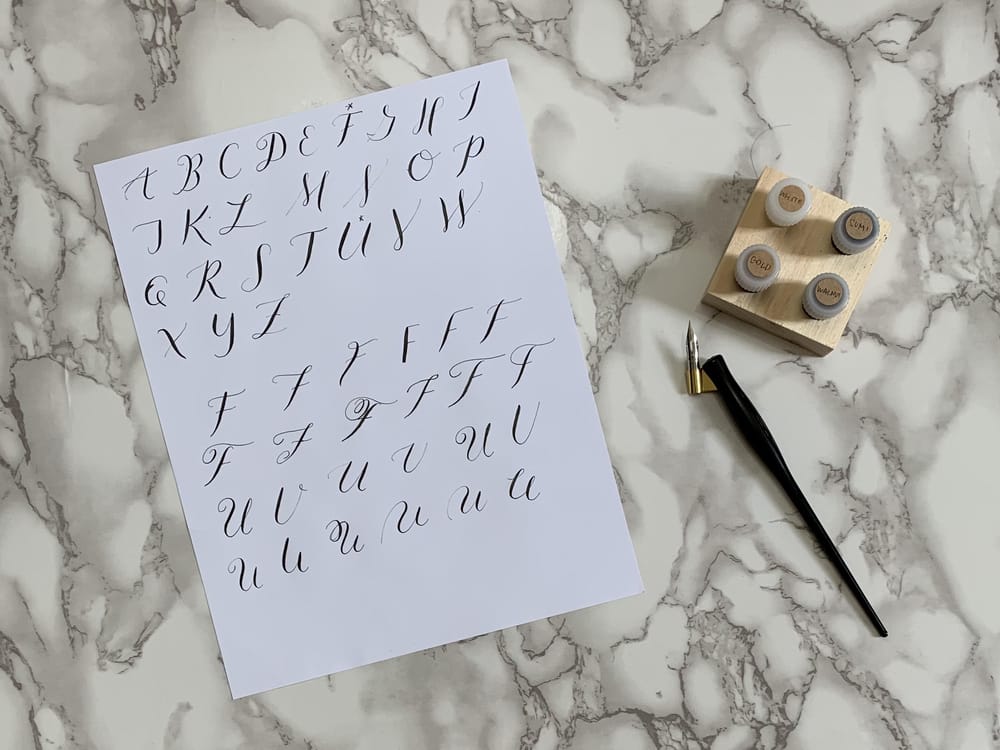 A B C D E F* G H I
J K L M N O P
Q R S T U* V W
X Y Z
F F F F F F
F F F F F F
U U U U U U
U U U U U U
WHITE
SUMI
GOLD
WALNUT